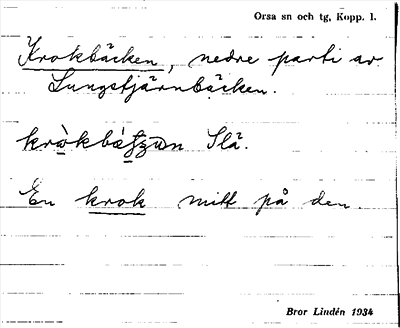 Orsa sn och tg, Kopp. l.
Krokbäcken, nedre parti av
Lungstjärnbäcken.
Slä.
En krok mitt på den.
Bror Lindén 1934